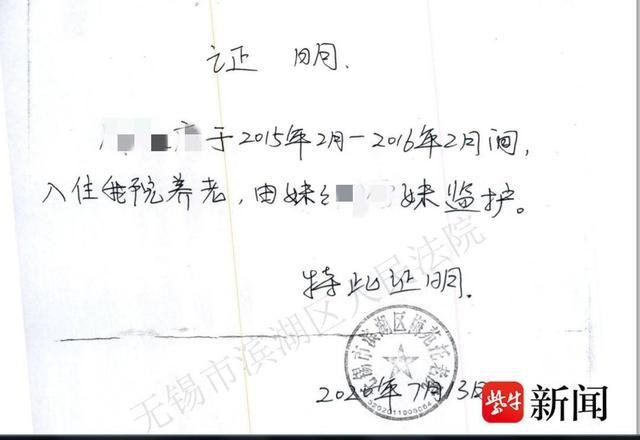 证 明.
于2015年2月-2016年2月间,
入住我院养老,由妹 妹监护。
特此证明.
无锡市滨湖区
7月13日
无锡市滨湖区人民法院
紫牛新闻